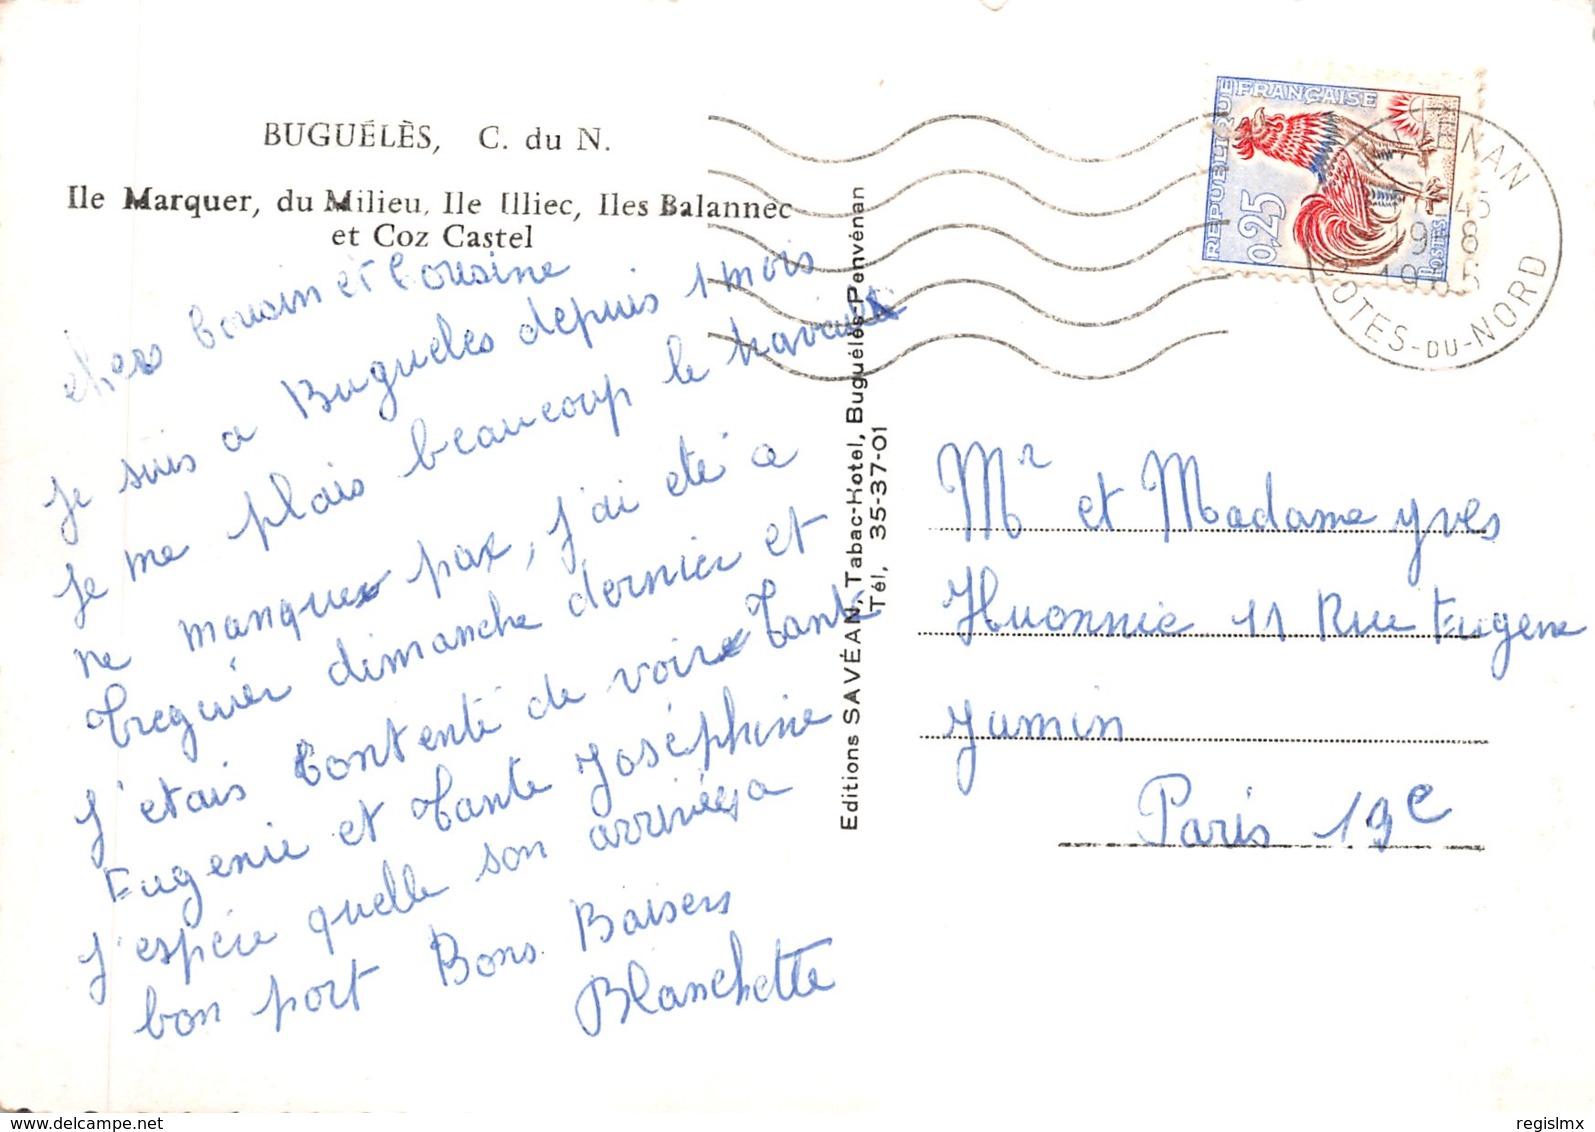 BUGUÉLÈS, C. du N.
Ile Marquer, du Milieu, Ile Illiec, Iles Balannec
et Coz Castel
chers Cousin et Cousine
Je suis a Bugueles depuis 1 mois
Je me plais beaucoup le travail
ne manque pas, J'ai eté a
Treguier dimanche dernier et
J'etais Contente de voir Tante
Eugenie et Tante Joséphine
J'espére quelle son arrivées a
bon port Bons Baisers
Blanchette
Editions SAVÉAN, Tabac-Hotel, Buguélès-Penvénan
Tél. 35-37-01
REPUBLIQUE FRANÇAISE
0,25
POSTES
VENAN
45
19 - 8
COTES-DU-NORD
Mr et Madame Yves
Huonnic 11 Rue Eugene
Jumin
Paris 19e
delcampe.net
regisImx